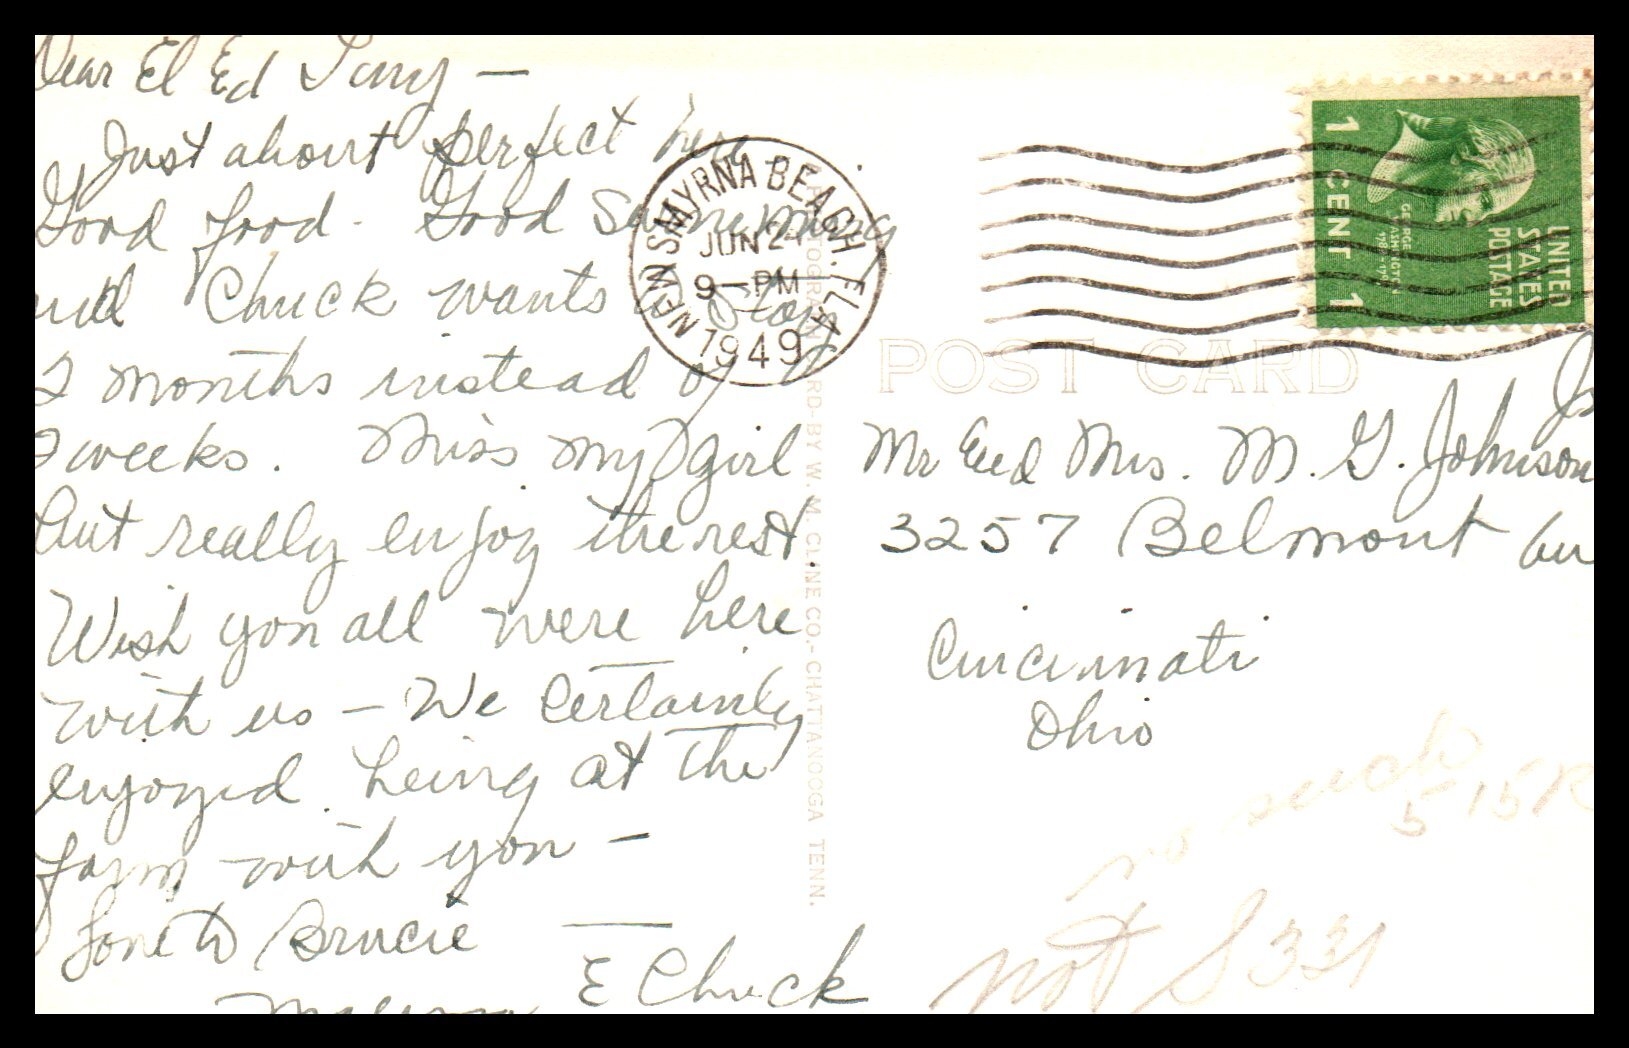 Dear El Ed
Just about perfect here
Good food. Good Swimming
and Chuck wants to stay
2 months instead of
2 weeks. Miss my girl
but really enjoy the rest
Wish you all were here
with us — We certainly
enjoyed being at the
farm with you —
Love to Brucie —
& Chuck
NEW SMYRNA BEACH, FLA.
JUN 24
9 — PM
1949
UNITED
STATES
POSTAGE
GEORGE
WASHINGTON
1 CENT 1
POST CARD
CARD-BY W. M. CLINE CO.- CHATTANOOGA TENN.
Jr
Mr and Mrs. M. G. Johnson
3257 Belmont av
Cincinnati
Ohio
no such
not 331